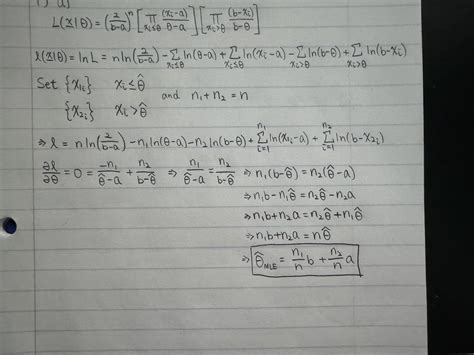 1) a)
L(x|θ) = (2/(b-a))^n [∏_{x_i≤θ} (x_i-a)/(θ-a)] [∏_{x_i>θ} (b-x_i)/(b-θ)]
ℓ(x|θ) = ln L = n ln(2/(b-a)) - Σ_{x_i≤θ} ln(θ-a) + Σ_{x_i≤θ} ln(x_i-a) - Σ_{x_i>θ} ln(b-θ) + Σ_{x_i>θ} ln(b-x_i)
Set {x_{1i}} x_i≤θ̂
{x_{2i}} x_i>θ̂ and n₁+n₂=n
⇒ ℓ = n ln(2/(b-a)) - n₁ln(θ-a) - n₂ln(b-θ) + Σ_{i=1}^{n₁} ln(x_{1i}-a) + Σ_{i=1}^{n₂} ln(b-x_{2i})
∂ℓ/∂θ = 0 = -n₁/(θ̂-a) + n₂/(b-θ̂) ⇒ n₁/(θ̂-a) = n₂/(b-θ̂) ⇒ n₁(b-θ̂) = n₂(θ̂-a)
⇒ n₁b - n₁θ̂ = n₂θ̂ - n₂a
⇒ n₁b + n₂a = n₂θ̂ + n₁θ̂
⇒ n₁b + n₂a = nθ̂
⇒ θ̂_{MLE} = (n₁/n)b + (n₂/n)a